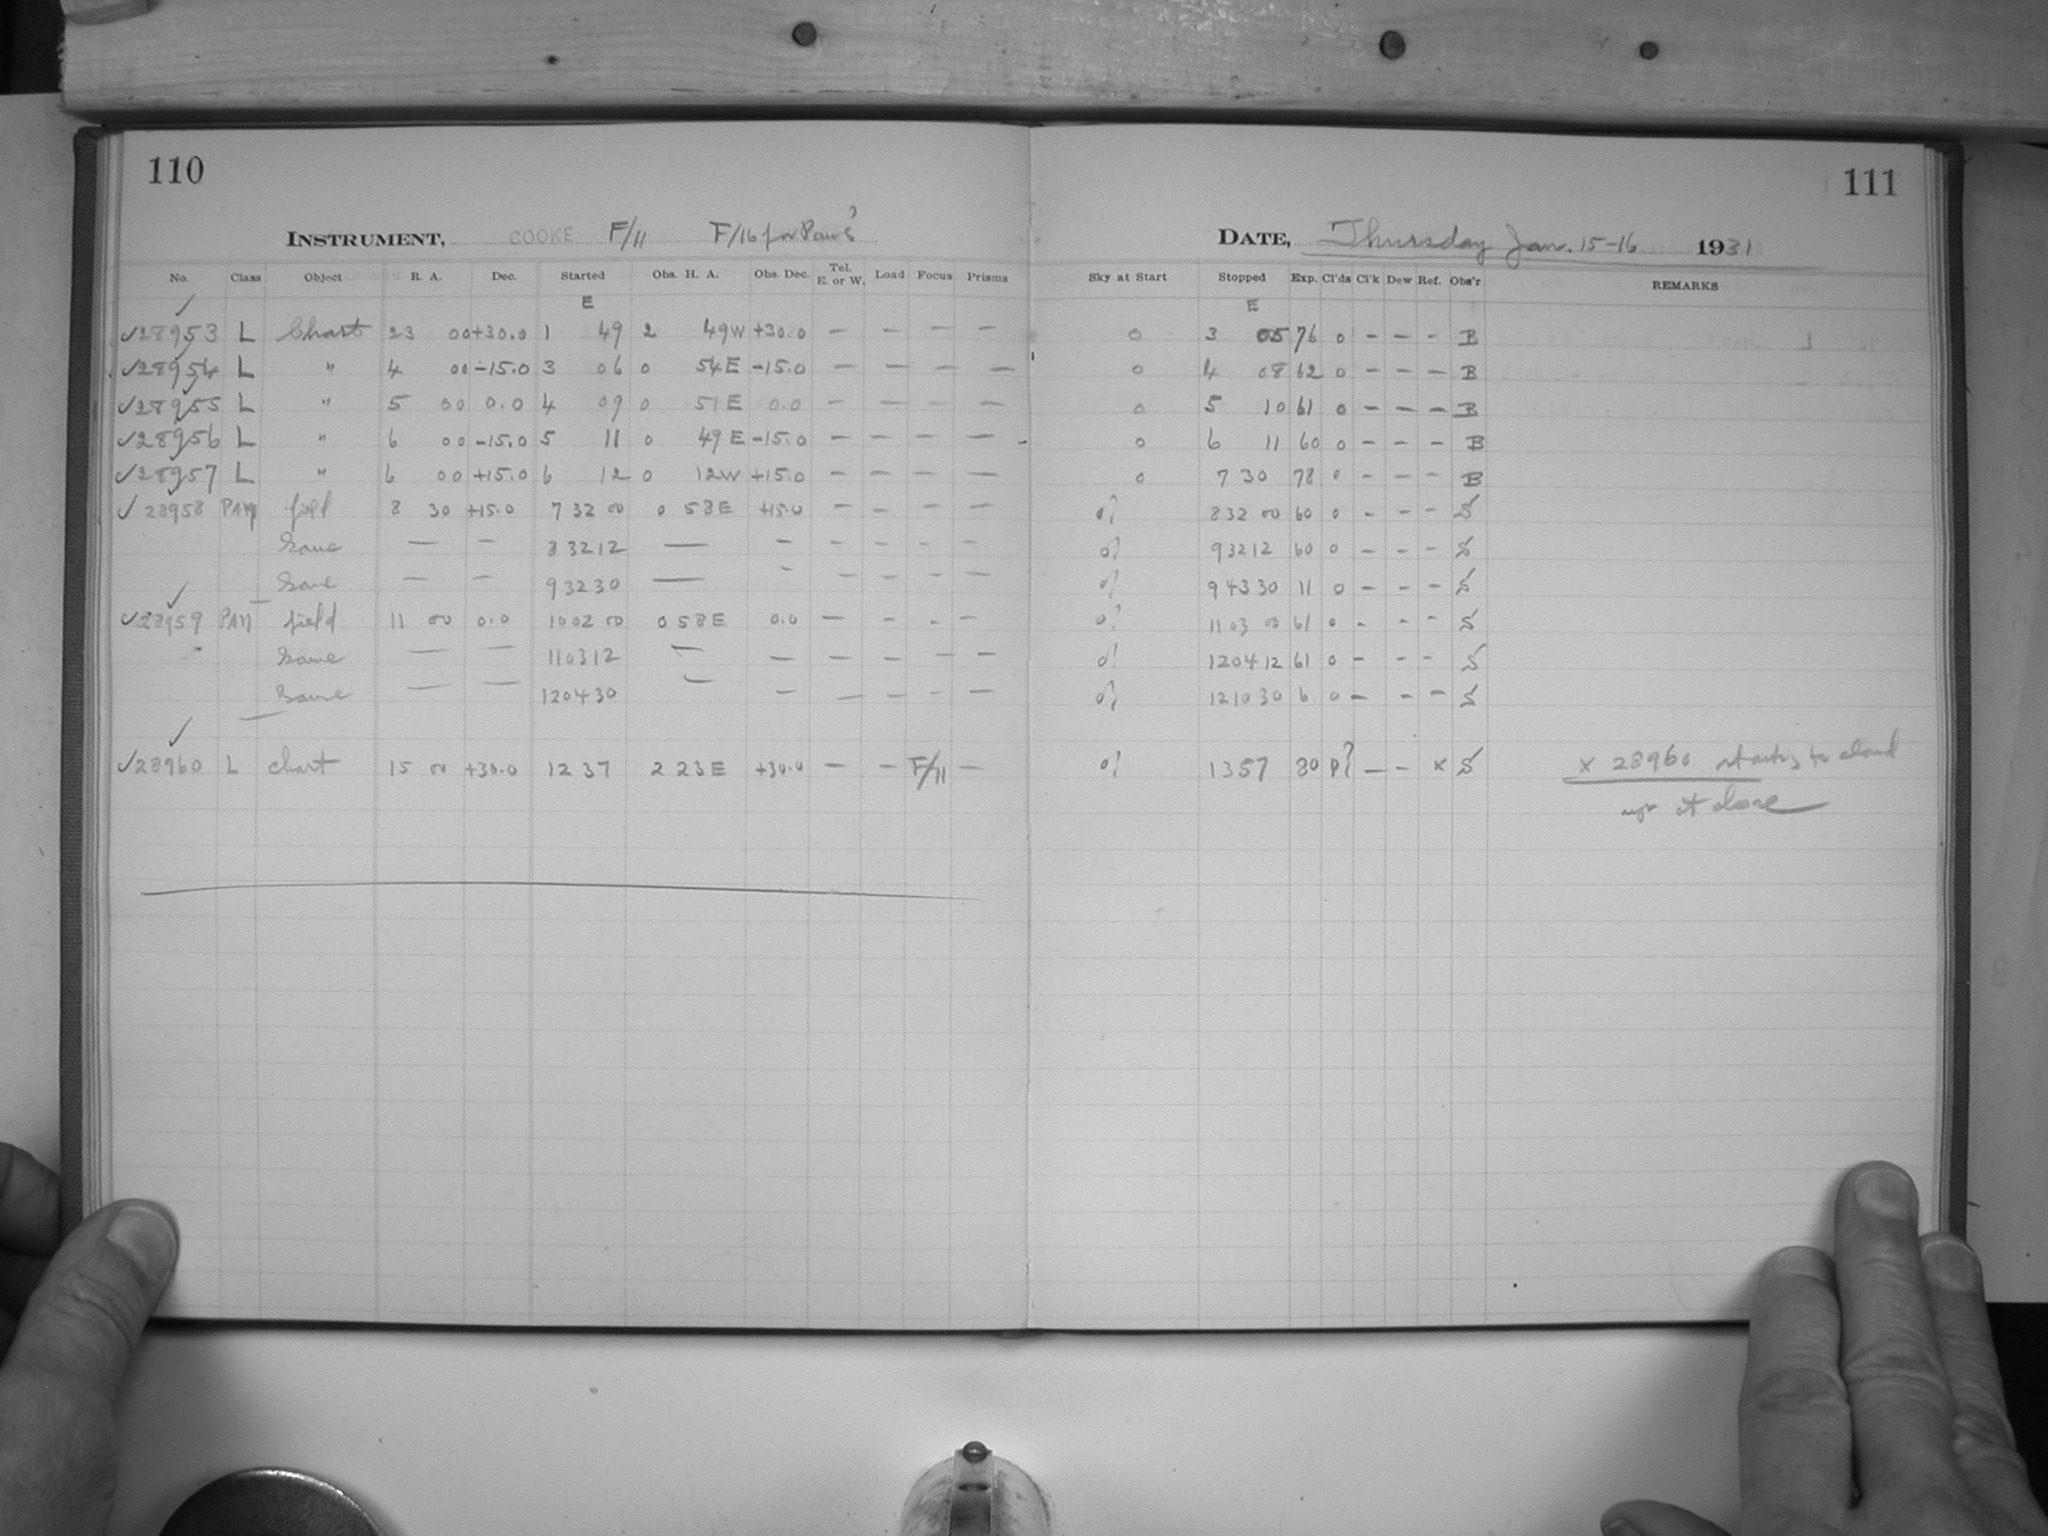 110
111
INSTRUMENT, COOKE F/11 F/16 for Pan's
DATE, Thursday Jan. 15-16 1931
No. Class Object R. A. Dec. Started Obs. H. A. Obs. Dec. Tel. E. or W. Load Focus Prisms Sky at Start Stopped Exp. Cl'ds Cl'k Dew Ref. Obs'r REMARKS
E E
✓28953 L Chart 23 00 +30.0 1 49 2 49W +30.0 — — — — 0 3 05 76 0 — — - B
✓28954 L " 4 00 -15.0 3 06 0 54E -15.0 — — — — 0 4 08 62 0 — — — B
✓28955 L " 5 00 0.0 4 09 0 51E 0.0 — — — — 0 5 10 61 0 — — — B
✓28956 L " 6 00 -15.0 5 11 0 49E -15.0 — — — — 0 6 11 60 0 — — - B
✓28957 L " 6 00 +15.0 6 12 0 12W +15.0 — — — — 0 7 30 78 0 - - - B
✓28958 PAN field 8 30 +15.0 7 32 00 0 58E +15.0 — — — — 0? 8 32 00 60 0 - - - S
Same — — 8 32 12 — — — — — — 0? 9 32 12 60 0 - - - S
Same — — 9 32 30 — - — — — — 0? 9 43 30 11 0 — - - S
✓28959 PAN field 11 00 0.0 10 02 00 0 58E 0.0 — — - — 0? 11 03 00 61 0 - - - S
Same — — 11 03 12 — — — — — — 0? 12 04 12 61 0 — - - S
Same — — 12 04 30 — — — — - — 0? 12 10 30 6 0 — - - S
✓28960 L chart 15 00 +30.0 12 37 2 23E +30.0 — — F/11 — 0? 13 57 80 P? — — x S x 28960 starting to cloud
up at close